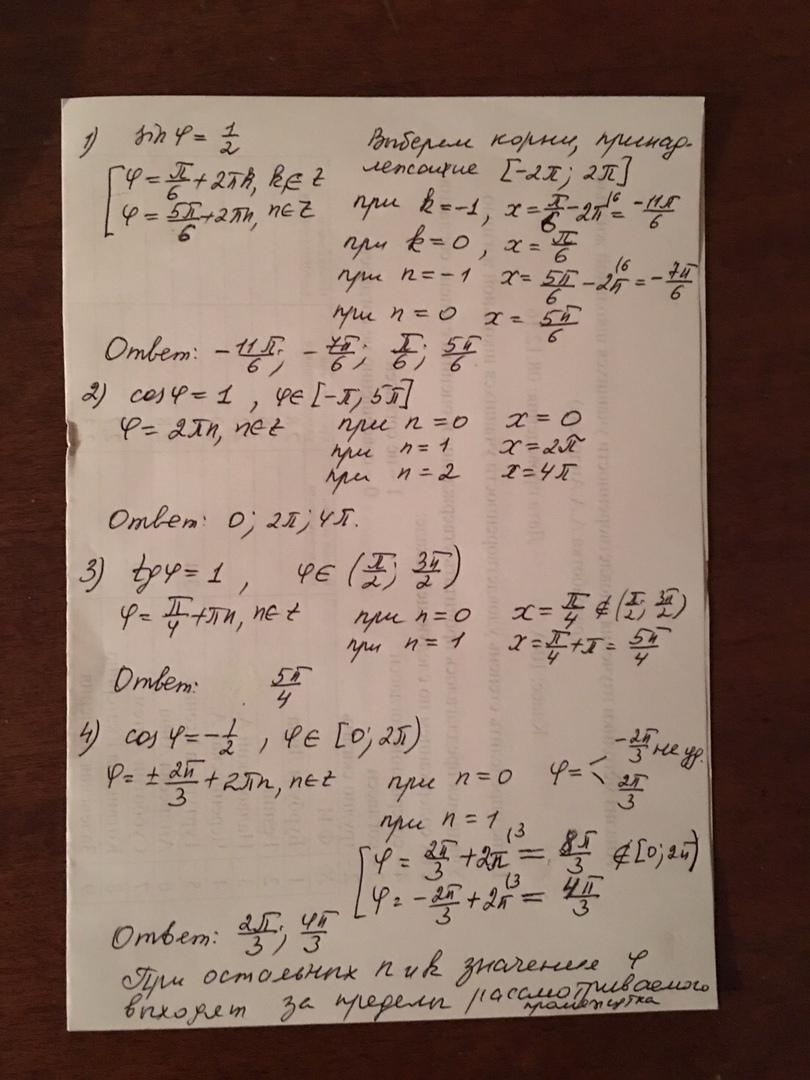 1) sin φ = 1/2
[ φ = π/6 + 2πk, k∈Z
φ = 5π/6 + 2πn, n∈Z
Выберем корни, принад-
лежащие [-2π; 2π]
при k = -1, x = π/6 - 2π^(6 = -11π/6
при k = 0, x = π/6
при n = -1 x = 5π/6 - 2π^(6 = -7π/6
при n = 0 x = 5π/6
Ответ: -11π/6; -7π/6; π/6; 5π/6
2) cos φ = 1, φ∈ [-π; 5π]
φ = 2πn, n∈Z при n = 0 x = 0
при n = 1 x = 2π
при n = 2 x = 4π
Ответ: 0; 2π; 4π.
3) tg φ = 1, φ∈ (π/2; 3π/2)
φ = π/4 + πn, n∈Z при n = 0 x = π/4 ∉ (π/2; 3π/2)
при n = 1 x = π/4 + π = 5π/4
Ответ: 5π/4
4) cos φ = -1/2, φ∈ [0; 2π)
φ = ± 2π/3 + 2πn, n∈Z при n = 0 φ = < -2π/3 не уд.
2π/3
при n = 1
[ φ = 2π/3 + 2π^(3 = 8π/3 ∉ [0; 2π)
φ = -2π/3 + 2π^(3 = 4π/3
Ответ: 2π/3; 4π/3
При остальных n и k значение φ
выходят за пределы рассматриваемого
промежутка